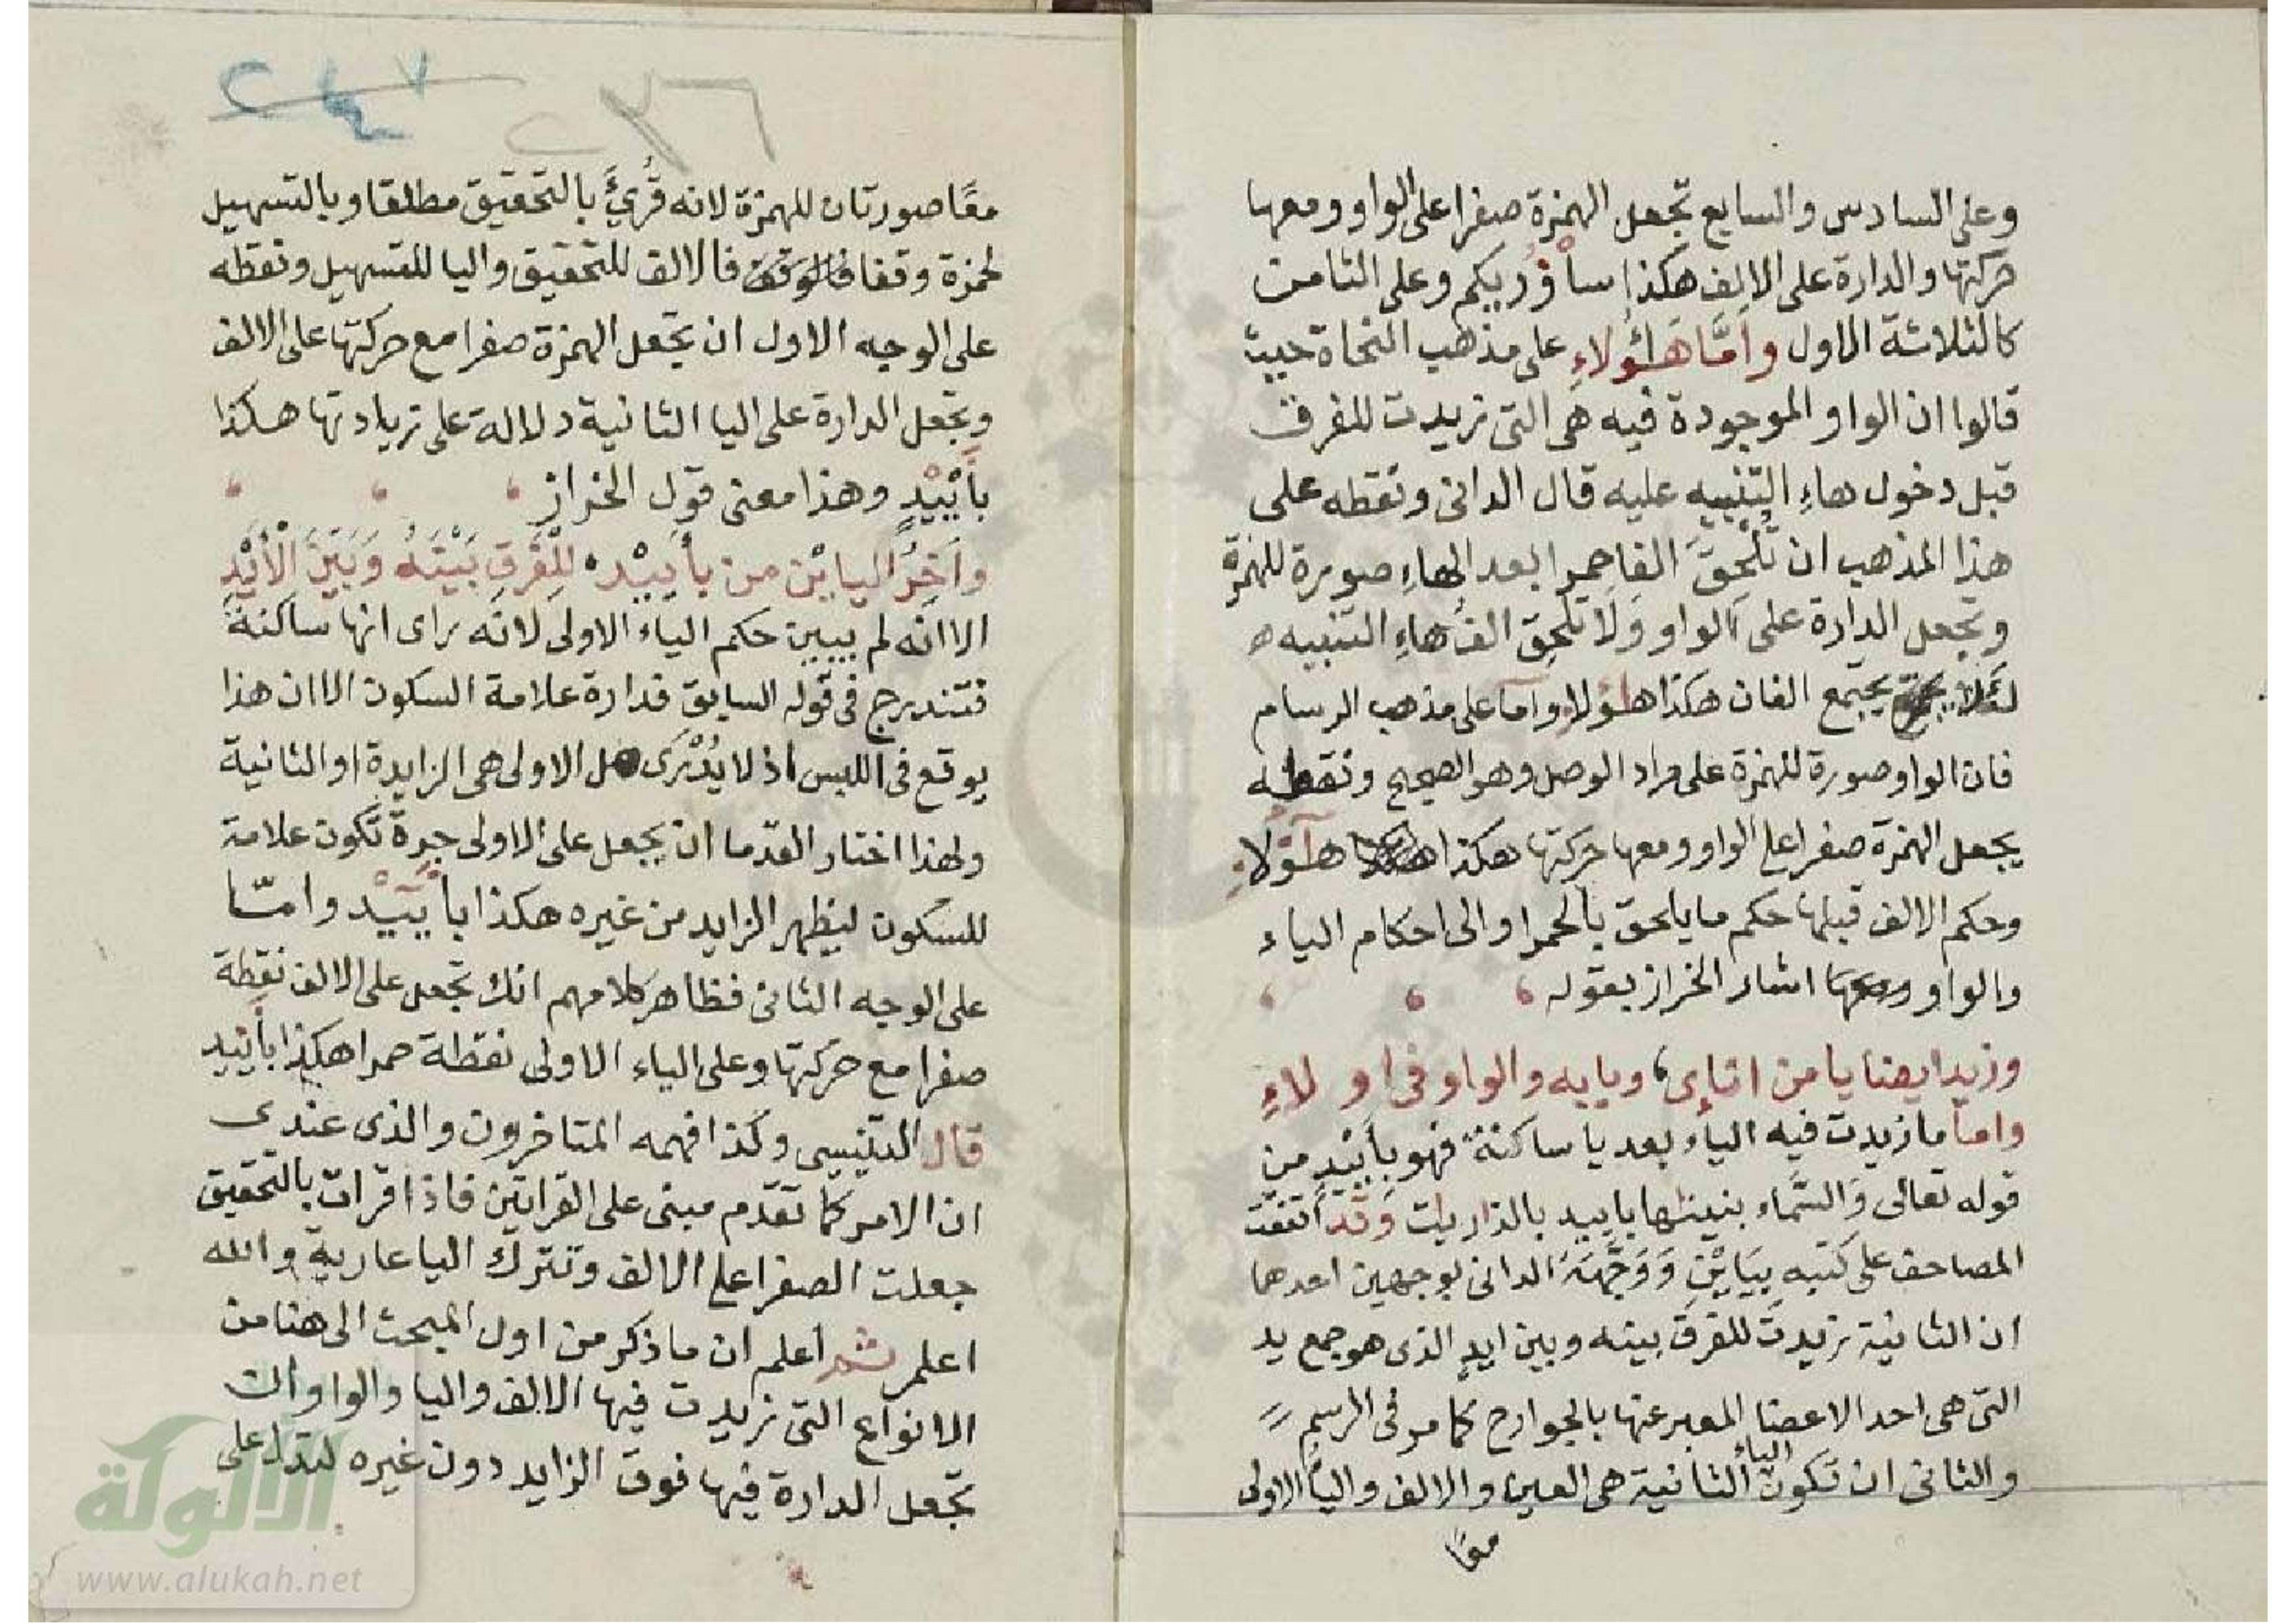 وعلى السادس والسابع تجعل الهمزة صفرا على الواو ومعها
حركتها والدارة على الالف هكذا سأُوْرِيكم وعلى الثامن
كالثلاثة الاول وأمَّا هَـٰؤُلاءِ على مذهب النحاة حيث
قالوا ان الواو الموجودة فيه هى التى زيدت للفرق
قبل دخول هاءِ التنبيه عليه قال الدانى ونقطه على
هذا المذهب ان تُلْحِقَ الفا حمرا بعد الهاءِ صورة للهمزة
وتجعل الدارة على الواو وَلَا تُلْحِقَ الفُ هاءِ التنبيه ه
لئلا يجتمع الفان هكذا هاؤلاءِ وأما على مذهب الرسام
فان الواو صورة للهمزة على مراد الوصل وهو الصحيح ونقطه
يجعل الهمزة صفرا على الواو ومعها حركتها هكذا هـٰؤُلاءِ
وحكم الالف قبلها حكم ما يلحق بالحمرا والى احكام الياء
والواو اشار الخراز بقوله
وزيد ايضا يا من اناءى، وبابه والواو فى اولاءِ
وأما ما زيدت فيه الياء بعد يا ساكنة فهو بِأَيْيدٍ من
قوله تعالى وَالسَّمَاء بنينٰها باييد بالذاريٰت وَقد اتفقت
المصاحف على كتبه بِيَايْنِ وَوَجَّهَهُ الدانى بوجهين احدهما
ان الثانية زيدت للفرق بينه وبين ايدٍ الذى هو جمع يد
التى هى احد الاعضا المعبر عنها بالجوارح كما مر فى الرسم
والثانى ان تكون الياء الثانية هى العين والالف والياءُ الاولى
معًا
٢٣٦
معًا صورتان للهمزة لانه قُرِئَ بالتحقيق مطلقا وبالتسهيل
لحمزة وقفا فالالف للتحقيق واليا للتسهيل ونقطه
على الوجه الاول ان تجعل الهمزة صفرا مع حركتها على الالف
وتجعل الدارة على اليا الثانية دلالة على زيادتها هكذا
بأَيْيْدٍ وهذا معنى قول الخراز
وآخِرُ اليايْن من بأييْد، لِلْفَرقِ بَيْنَهُ وَبَيْنَ الْأَيْدِ
الا انه لم يبين حكم الياء الاولى لانه راى انها ساكنة
فتندرج فى قوله السابق فدارة علامة السكون الا ان هذا
يوقع فى اللبس اذ لا يُدْرَى هل الاولى هى الزايدة او الثانية
ولهذا اختار القدما ان يجعل على الاولى جرة تكون علامة
للسكون ليظهر الزايد من غيره هكذا بأييْد وامّـا
على الوجه الثانى فظاهر كلامهم انك تجعل على الالف نقطة
صفرا مع حركتها وعلى الياء الاولى نقطة حمرا هكذا بأييد
قال التنيسى وكذا فهمه المتاخرون والذى عندى
ان الامر كما تقدّم مبنى على القرايَتين فاذا قرات بالتحقيق
جعلت الصفرا على الالف وتترك اليا عارية والله
اعلم ثم اعلم ان ما ذكر من اول المبحث الى هنا من
الانواع التى زيدت فيها الالف واليا والواو ان
تجعل الدارة فيها فوق الزايد دون غيره لتدل على
الألوكة
www.alukah.net